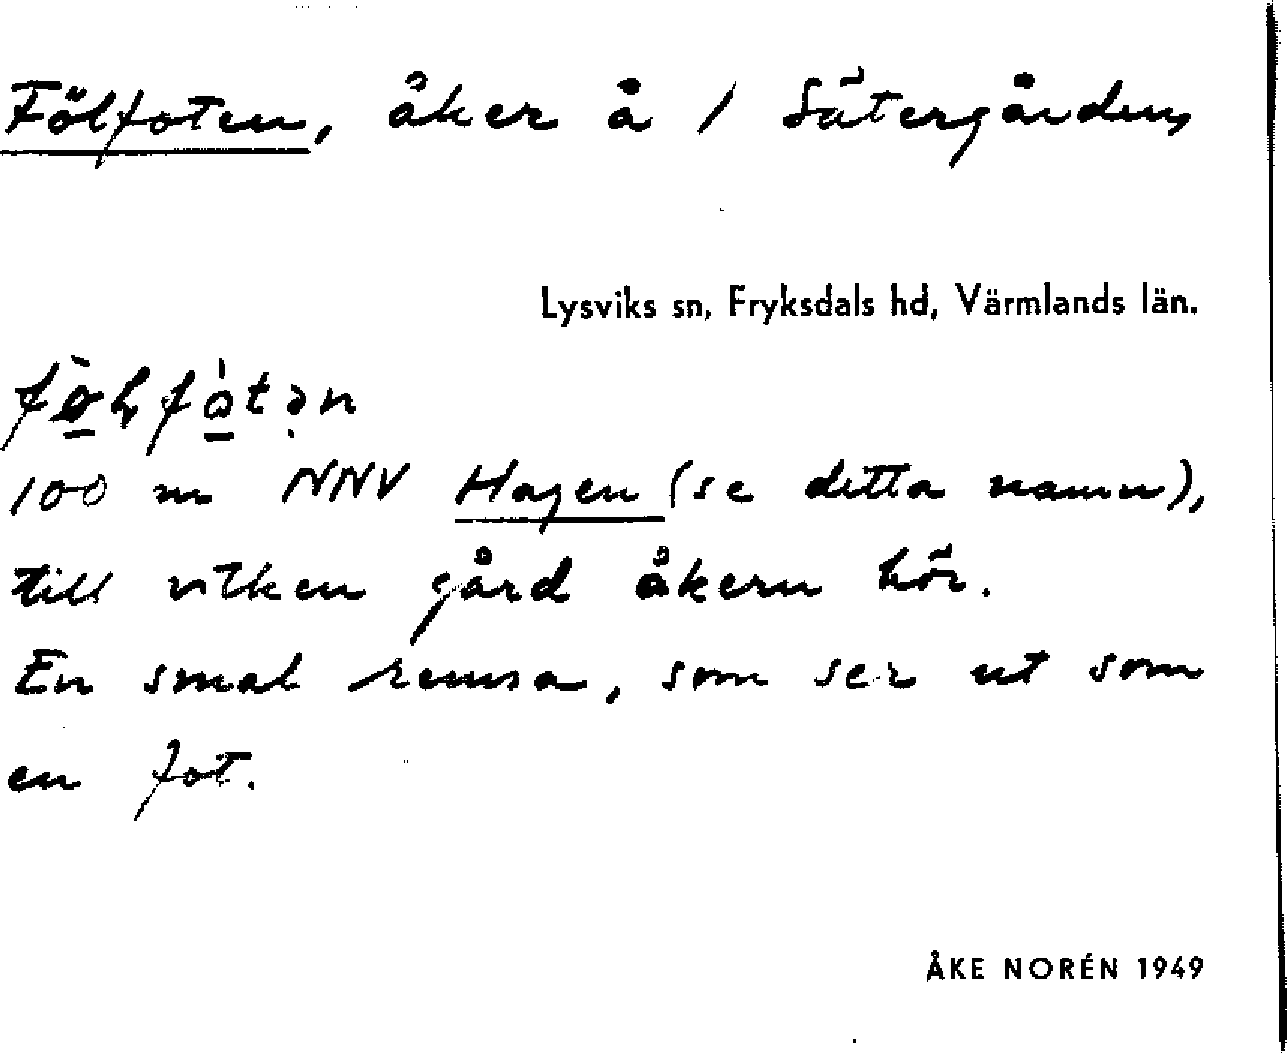 Fölfoten, åker å / Sätergården,
Lysviks sn, Fryksdals hd, Värmlands län.
100 m NNV Hagen (se detta namn),
till vilken gård åkern hör.
En smal remsa, som ser ut som
en fot.
ÅKE NORÉN 1949